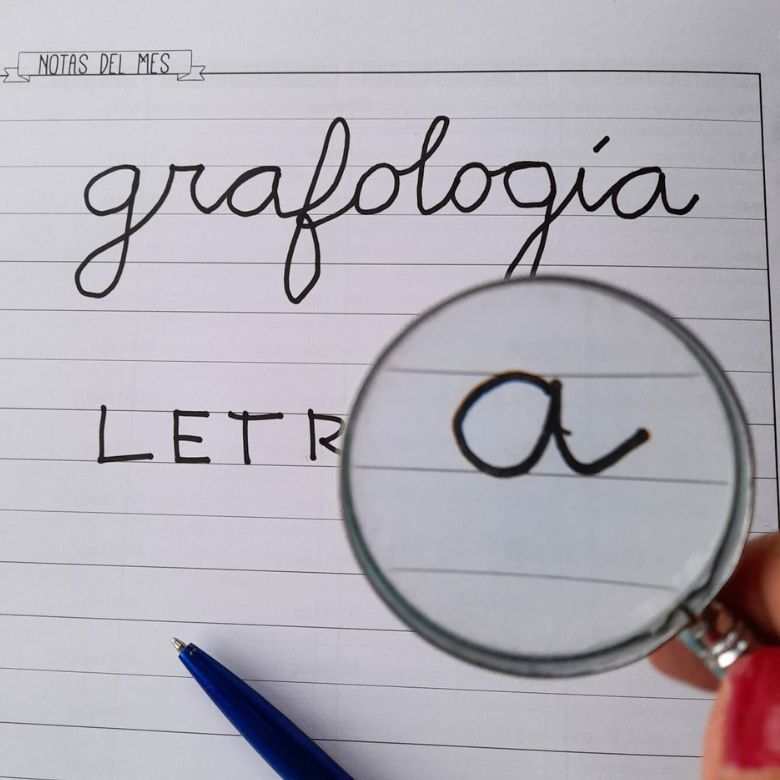 NOTAS DEL MES
grafología
LETR a